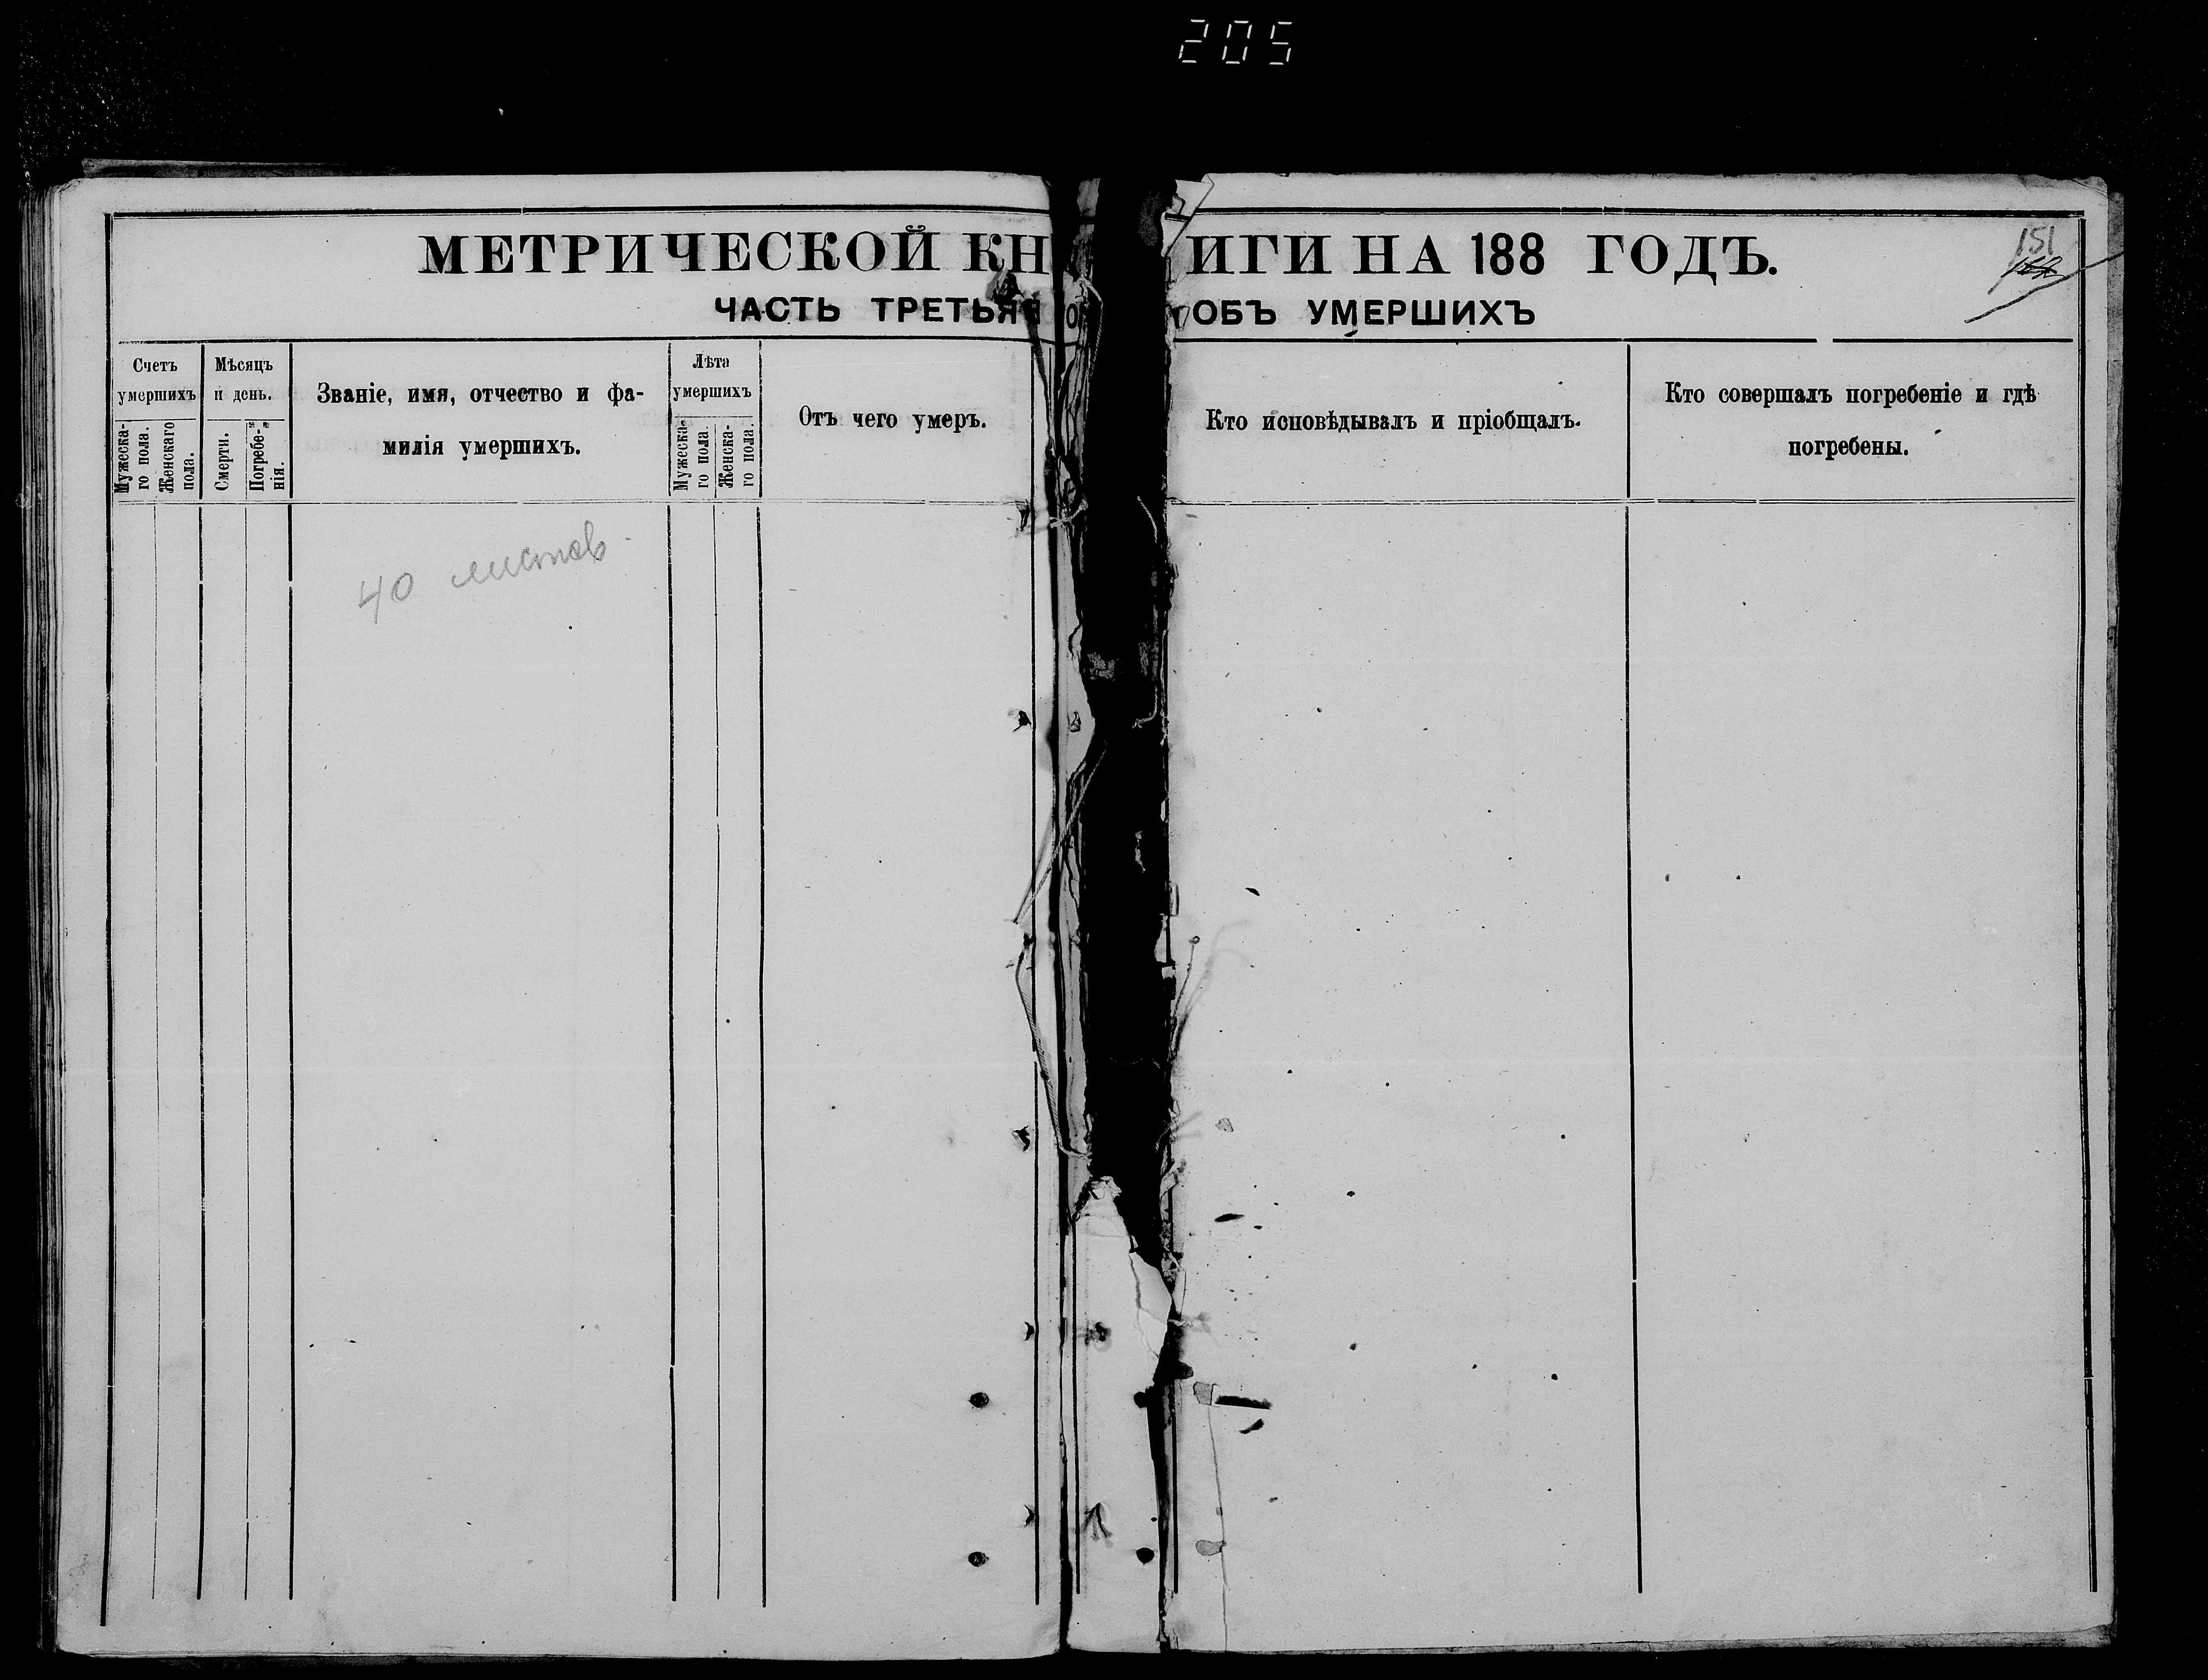 205
МЕТРИЧЕСКОЙ КНИГИ НА 188 ГОДЪ.
151
ЧАСТЬ ТРЕТЬЯ ОБЪ УМЕРШИХЪ
Счетъ
умершихъ
Мужеска-
го пола.
Женскаго
пола.
Мѣсяцъ
и день.
Смерти.
Погребе-
нія.
Званіе, имя, отчество и фа-
милія умершихъ.
Лѣта
умершихъ
Мужеска-
го пола.
Женска-
го пола
Отъ чего умеръ.
Кто исповѣдывалъ и пріобщалъ.
Кто совершалъ погребеніе и гдѣ
погребены.
40 листов